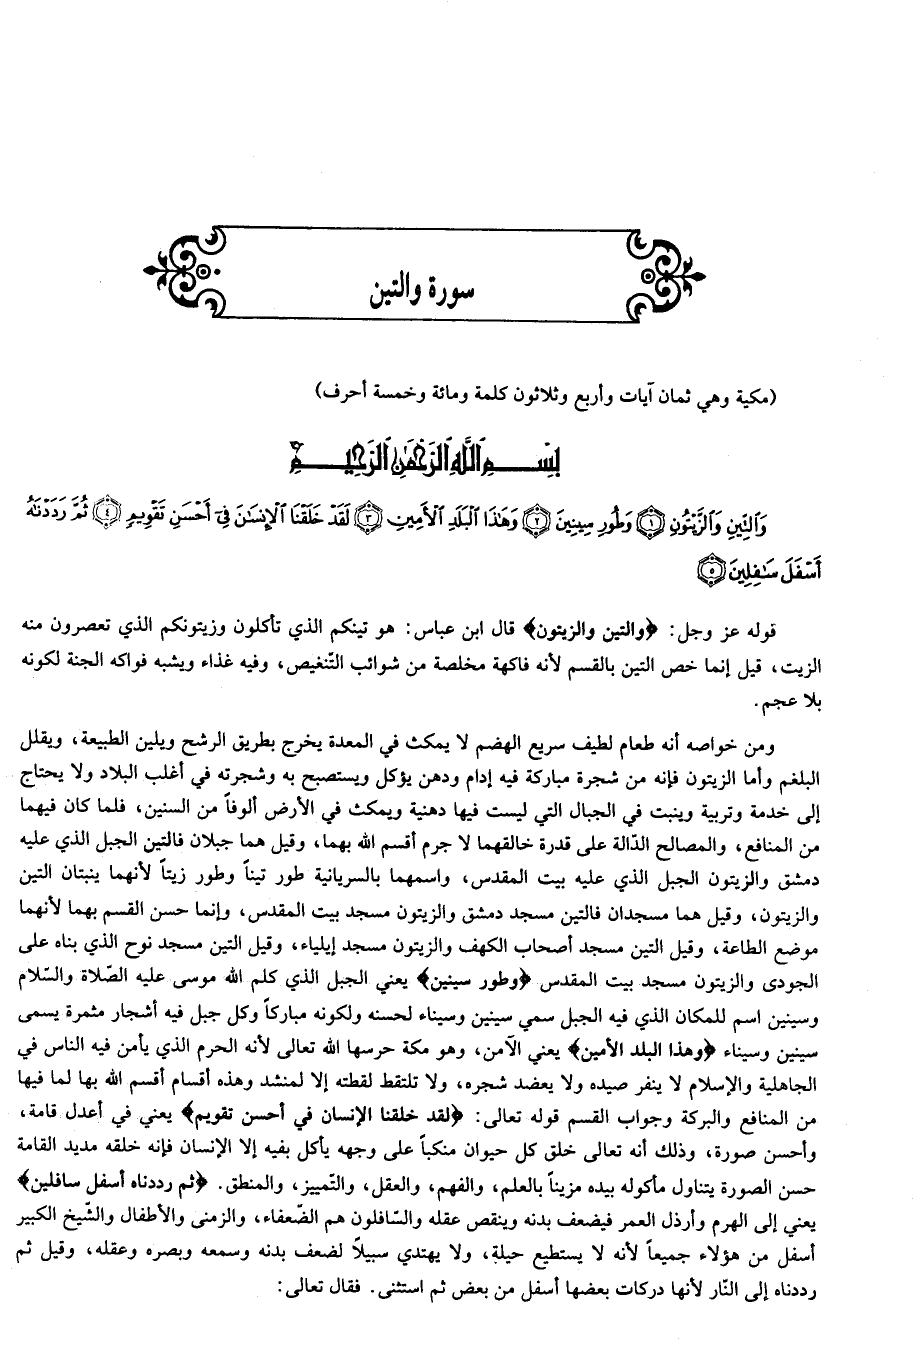 سورة والتين
(مكية وهي ثمان آيات وأربع وثلاثون كلمة ومائة وخمسة أحرف)
بِسْمِ اللَّهِ الرَّحْمَٰنِ الرَّحِيمِ
وَٱلتِّينِ وَٱلزَّيْتُونِ ﴿١﴾ وَطُورِ سِينِينَ ﴿٢﴾ وَهَٰذَا ٱلْبَلَدِ ٱلْأَمِينِ ﴿٣﴾ لَقَدْ خَلَقْنَا ٱلْإِنسَٰنَ فِىٓ أَحْسَنِ تَقْوِيمٍ ﴿٤﴾ ثُمَّ رَدَدْنَٰهُ
أَسْفَلَ سَٰفِلِينَ ﴿٥﴾
قوله عز وجل: ﴿والتين والزيتون﴾ قال ابن عباس: هو تينكم الذي تأكلون وزيتونكم الذي تعصرون منه
الزيت، قيل إنما خص التين بالقسم لأنه فاكهة مخلصة من شوائب التّنغيص، وفيه غذاء ويشبه فواكه الجنة لكونه
بلا عجم.
ومن خواصه أنه طعام لطيف سريع الهضم لا يمكث في المعدة يخرج بطريق الرشح ويلين الطبيعة، ويقلل
البلغم وأما الزيتون فإنه من شجرة مباركة فيه إدام ودهن يؤكل ويستصبح به وشجرته في أغلب البلاد ولا يحتاج
إلى خدمة وتربية وينبت في الجبال التي ليست فيها دهنية ويمكث في الأرض ألوفاً من السنين، فلما كان فيهما
من المنافع، والمصالح الدّالة على قدرة خالقهما لا جرم أقسم الله بهما، وقيل هما جبلان فالتين الجبل الذي عليه
دمشق والزيتون الجبل الذي عليه بيت المقدس، واسمهما بالسريانية طور تيناً وطور زيتاً لأنهما ينبتان التين
والزيتون، وقيل هما مسجدان فالتين مسجد دمشق والزيتون مسجد بيت المقدس، وإنما حسن القسم بهما لأنهما
موضع الطاعة، وقيل التين مسجد أصحاب الكهف والزيتون مسجد إيلياء، وقيل التين مسجد نوح الذي بناه على
الجودى والزيتون مسجد بيت المقدس ﴿وطور سينين﴾ يعني الجبل الذي كلم الله موسى عليه الصّلاة والسّلام
وسينين اسم للمكان الذي فيه الجبل سمي سينين وسيناء لحسنه ولكونه مباركاً وكل جبل فيه أشجار مثمرة يسمى
سينين وسيناء ﴿وهذا البلد الأمين﴾ يعني الآمن، وهو مكة حرسها الله تعالى لأنه الحرم الذي يأمن فيه الناس في
الجاهلية والإسلام لا ينفر صيده ولا يعضد شجره، ولا تلتقط لقطته إلا لمنشد وهذه أقسام أقسم الله بها لما فيها
من المنافع والبركة وجواب القسم قوله تعالى: ﴿لقد خلقنا الإنسان في أحسن تقويم﴾ يعني في أعدل قامة،
وأحسن صورة، وذلك أنه تعالى خلق كل حيوان منكباً على وجهه يأكل بفيه إلا الإنسان فإنه خلقه مديد القامة
حسن الصورة يتناول مأكوله بيده مزيناً بالعلم، والفهم، والعقل، والتّمييز، والمنطق. ﴿ثم رددناه أسفل سافلين﴾
يعني إلى الهرم وأرذل العمر فيضعف بدنه وينقص عقله والسّافلون هم الضّعفاء، والزمنى والأطفال والشّيخ الكبير
أسفل من هؤلاء جميعاً لأنه لا يستطيع حيلة، ولا يهتدي سبيلاً لضعف بدنه وسمعه وبصره وعقله، وقيل ثم
رددناه إلى النّار لأنها دركات بعضها أسفل من بعض ثم استثنى. فقال تعالى: